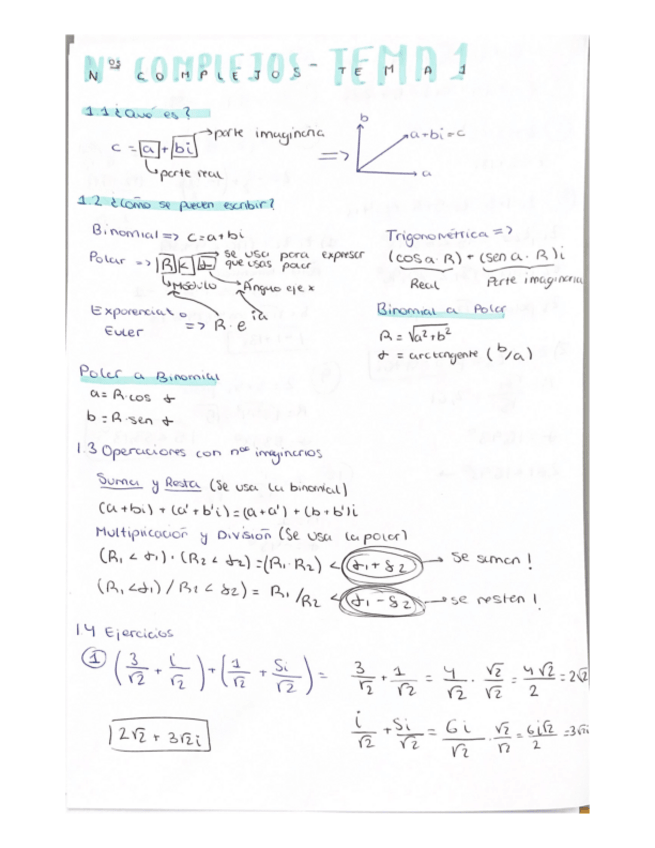 Nºˢ COMPLEJOS - TEMA 1
1.1 ¿Qué es?
c = a + bi → parte imaginaria
↳ parte real
=> b a+bi=c a
1.2 ¿Cómo se pueden escribir?
Binomial => c=a+bi
Polar => R < α → se usa para expresar que usas polar
↳ Módulo ↳ Ángulo eje x
Exponencial o Euler => R·e^iα
Trigonométrica =>
(cos α · R) + (sen α · R)i
Real Parte imaginaria
Binomial a Polar
R = √a²+b²
α = arctangente (b/a)
Polar a Binomial
a = R·cos α
b = R·sen α
1.3 Operaciones con nºˢ imaginarios
Suma y Resta (Se usa la binomial)
(a+bi) + (a'+b'i) = (a+a') + (b+b')i
Multiplicación y División (Se usa la polar)
(R₁ < α₁) · (R₂ < α₂) = (R₁·R₂) < α₁+α₂ → Se suman!
(R₁ < α₁) / R₂ < α₂) = R₁/R₂ < α₁-α₂ → se restan!
1.4 Ejercicios
① (3/√2 + i/√2) + (1/√2 + 5i/√2) =
3/√2 + 1/√2 = 4/√2 · √2/√2 = 4√2/2 = 2√2
i/√2 + 5i/√2 = 6i/√2 · √2/√2 = 6i√2/2 = 3√2i
2√2 + 3√2i